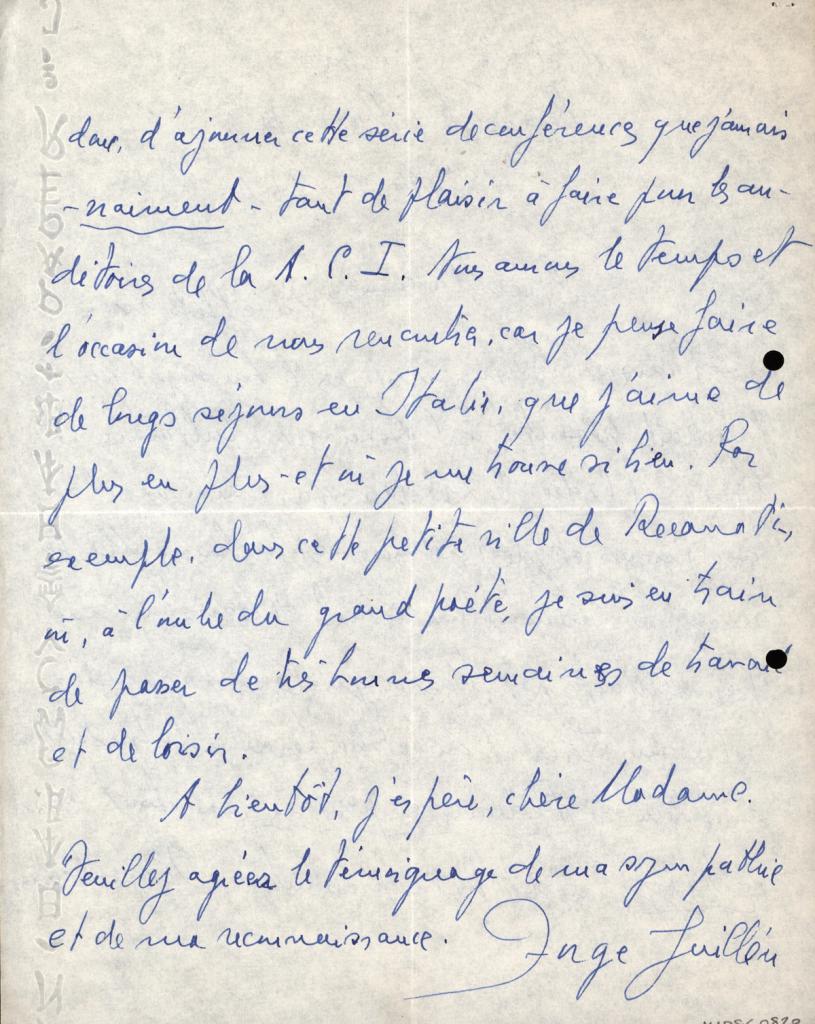 donc, d'ajourner cette série de conférences que j'aurais
- vraiment - tant de plaisir à faire pour les au-
ditoires de la A. C. I. Nous aurons le temps et
l'occasion de nous rencontrer, car je pense faire
de longs séjours en Italie, que j'aime de
plus en plus - et où je me trouve si bien. Par
exemple, dans cette petite ville de Recanati,
où, à l'ombre du grand poète, je suis en train
de passer de très bonnes semaines de travail
et de loisir.
A bientôt, j'espère, chère Madame.
Veuillez agréer le témoignage de ma sympathie
et de ma reconnaissance.
Jorge Guillén